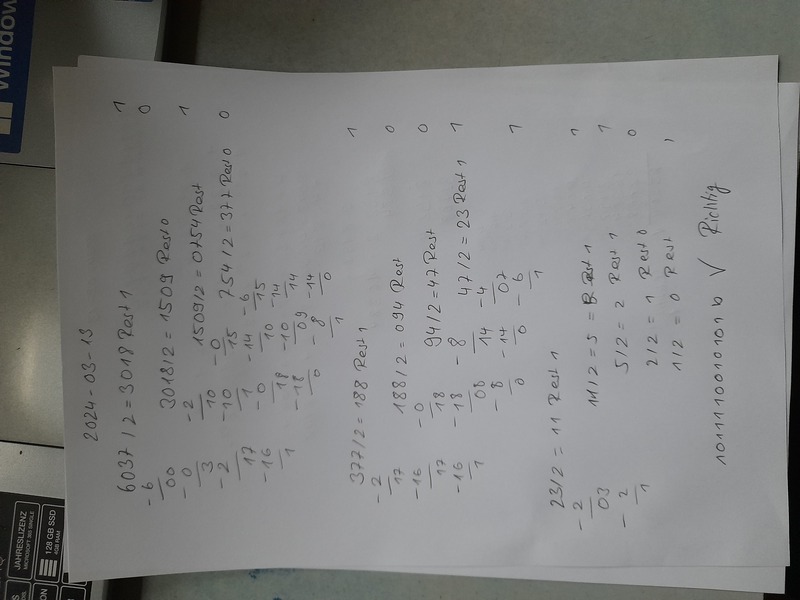 2024-03-13
6037 / 2 = 3018 Rest 1 1
-6
00 3018/2 = 1509 Rest 0 0
-0 -2
3 10 1509/2 = 0754 Rest 1
-2 -10 -0
17 1 15 754/2 = 377 Rest 0 0
-16 -0 -14 -6
1 18 10 15
-18 -10 -14
0 09 14
-8 -14
1 0
377/2 = 188 Rest 1 1
-2
17 188/2 = 094 Rest 0
-16 -0
17 18 94/2 = 47 Rest 0
-16 -18 -8
1 08 14 47/2 = 23 Rest 1 1
-8 -14 -4
0 0 07
-6
1
23/2 = 11 Rest 1 1
-2
03 11/2 = 5 Rest 1 1
-2 5/2 = 2 Rest 1 1
1 2/2 = 1 Rest 0 0
1/2 = 0 Rest 1
1011110010101 b √ Richtig
Window
JAHRESLIZENZ
MICROSOFT 365 SINGLE
128 GB SSD
4GB RAM